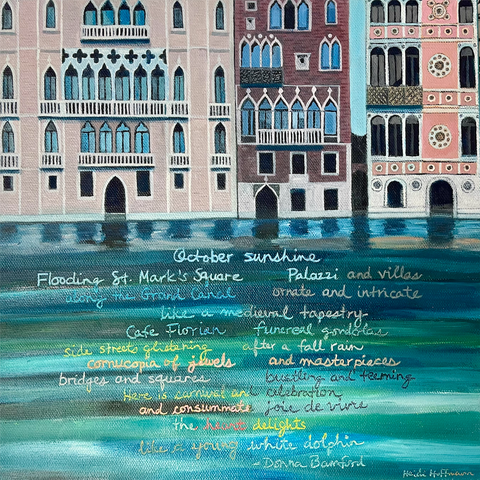 October sunshine
Flooding St. Mark's Square Palazzi and villas
along the Grand Canal ornate and intricate
like a medieval tapestry
Cafe Florian funereal gondolas
side streets glistening after a fall rain
cornucopia of jewels and masterpieces
bridges and squares bustling and teeming
Here is survival and celebration
and consummate joie de vivre
the heart delights
like a young white dolphin
-Donna Bamford
Heidi Hoffmann